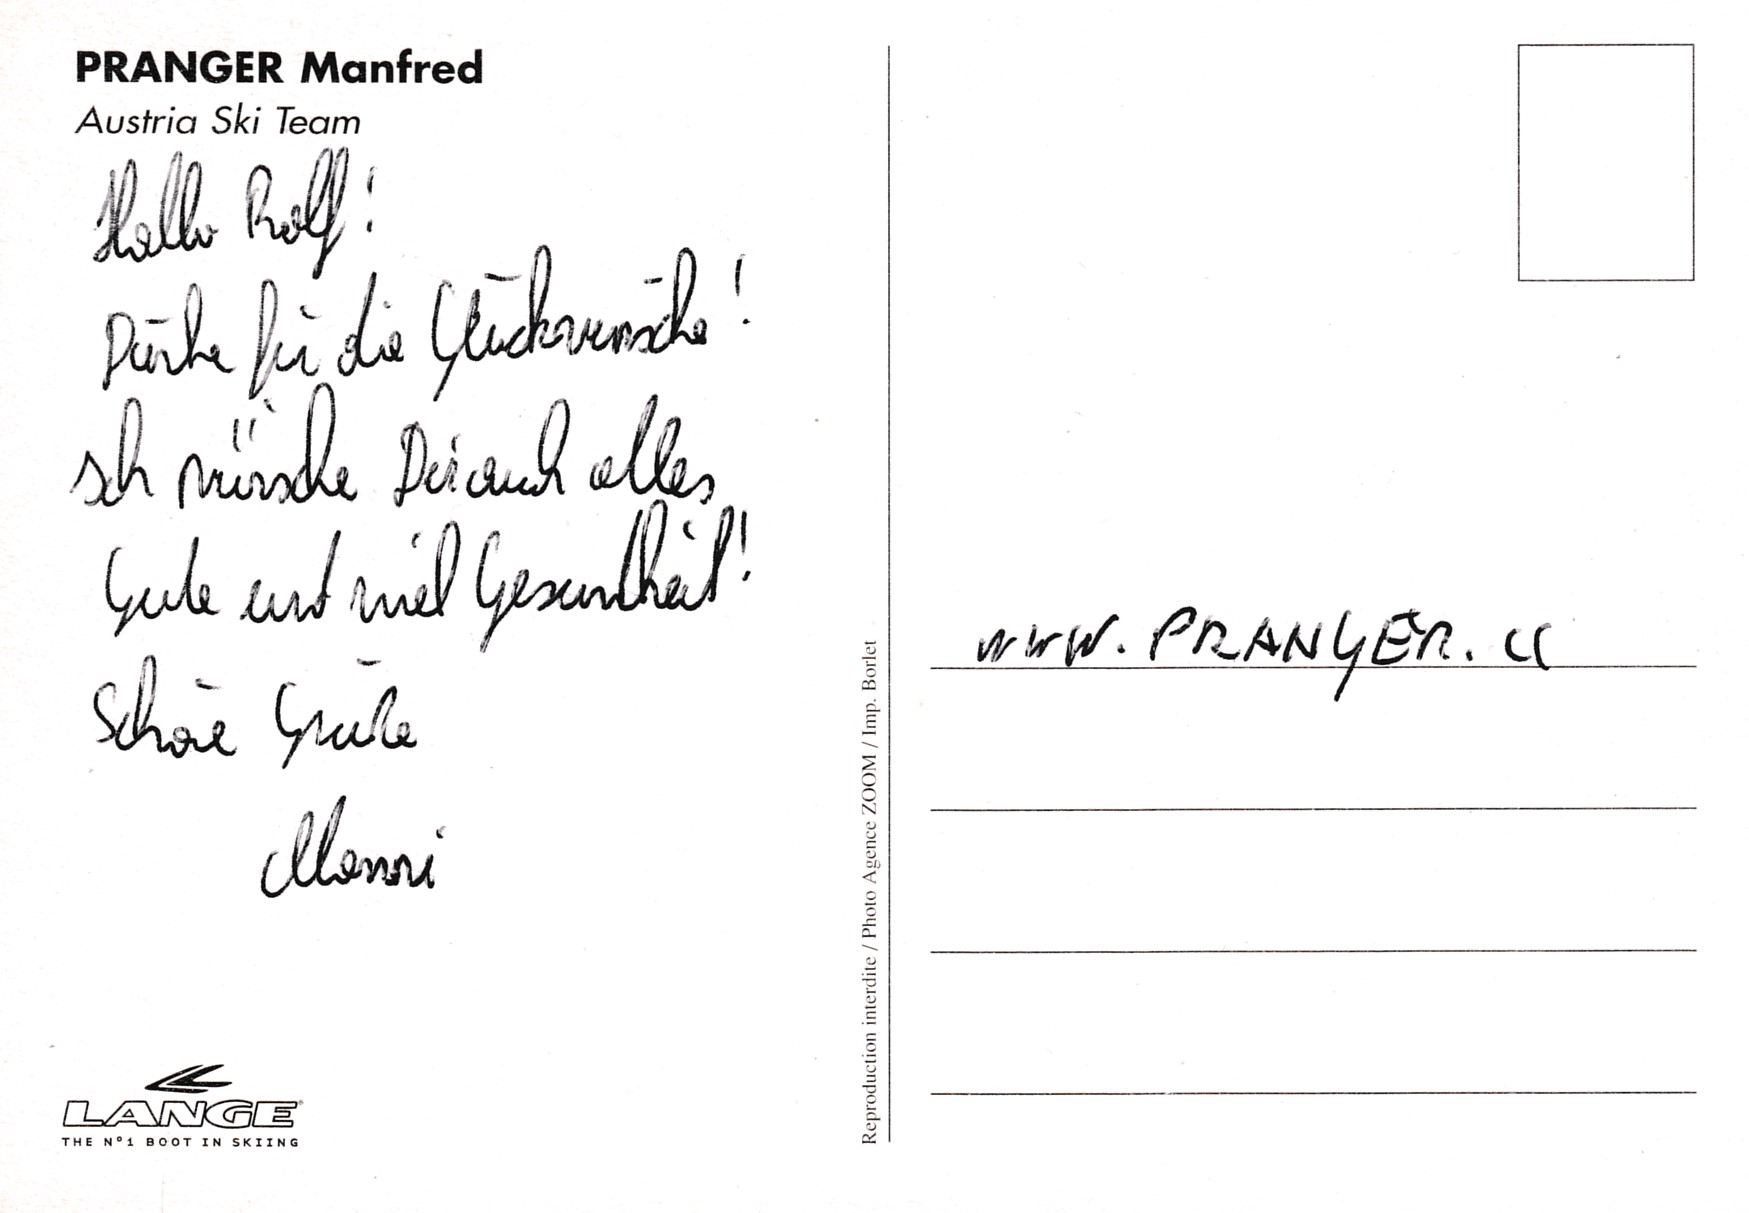 PRANGER Manfred
Austria Ski Team
Hallo Rolf!
Danke für die Glückwünsche!
Ich wünsche Dir auch alles
Gute und viel Gesundheit!
Schöne Grüße
Manni
LANGE
THE N°1 BOOT IN SKIING
Reproduction interdite / Photo Agence ZOOM / Imp. Borlet
WWW.PRANGER.CC